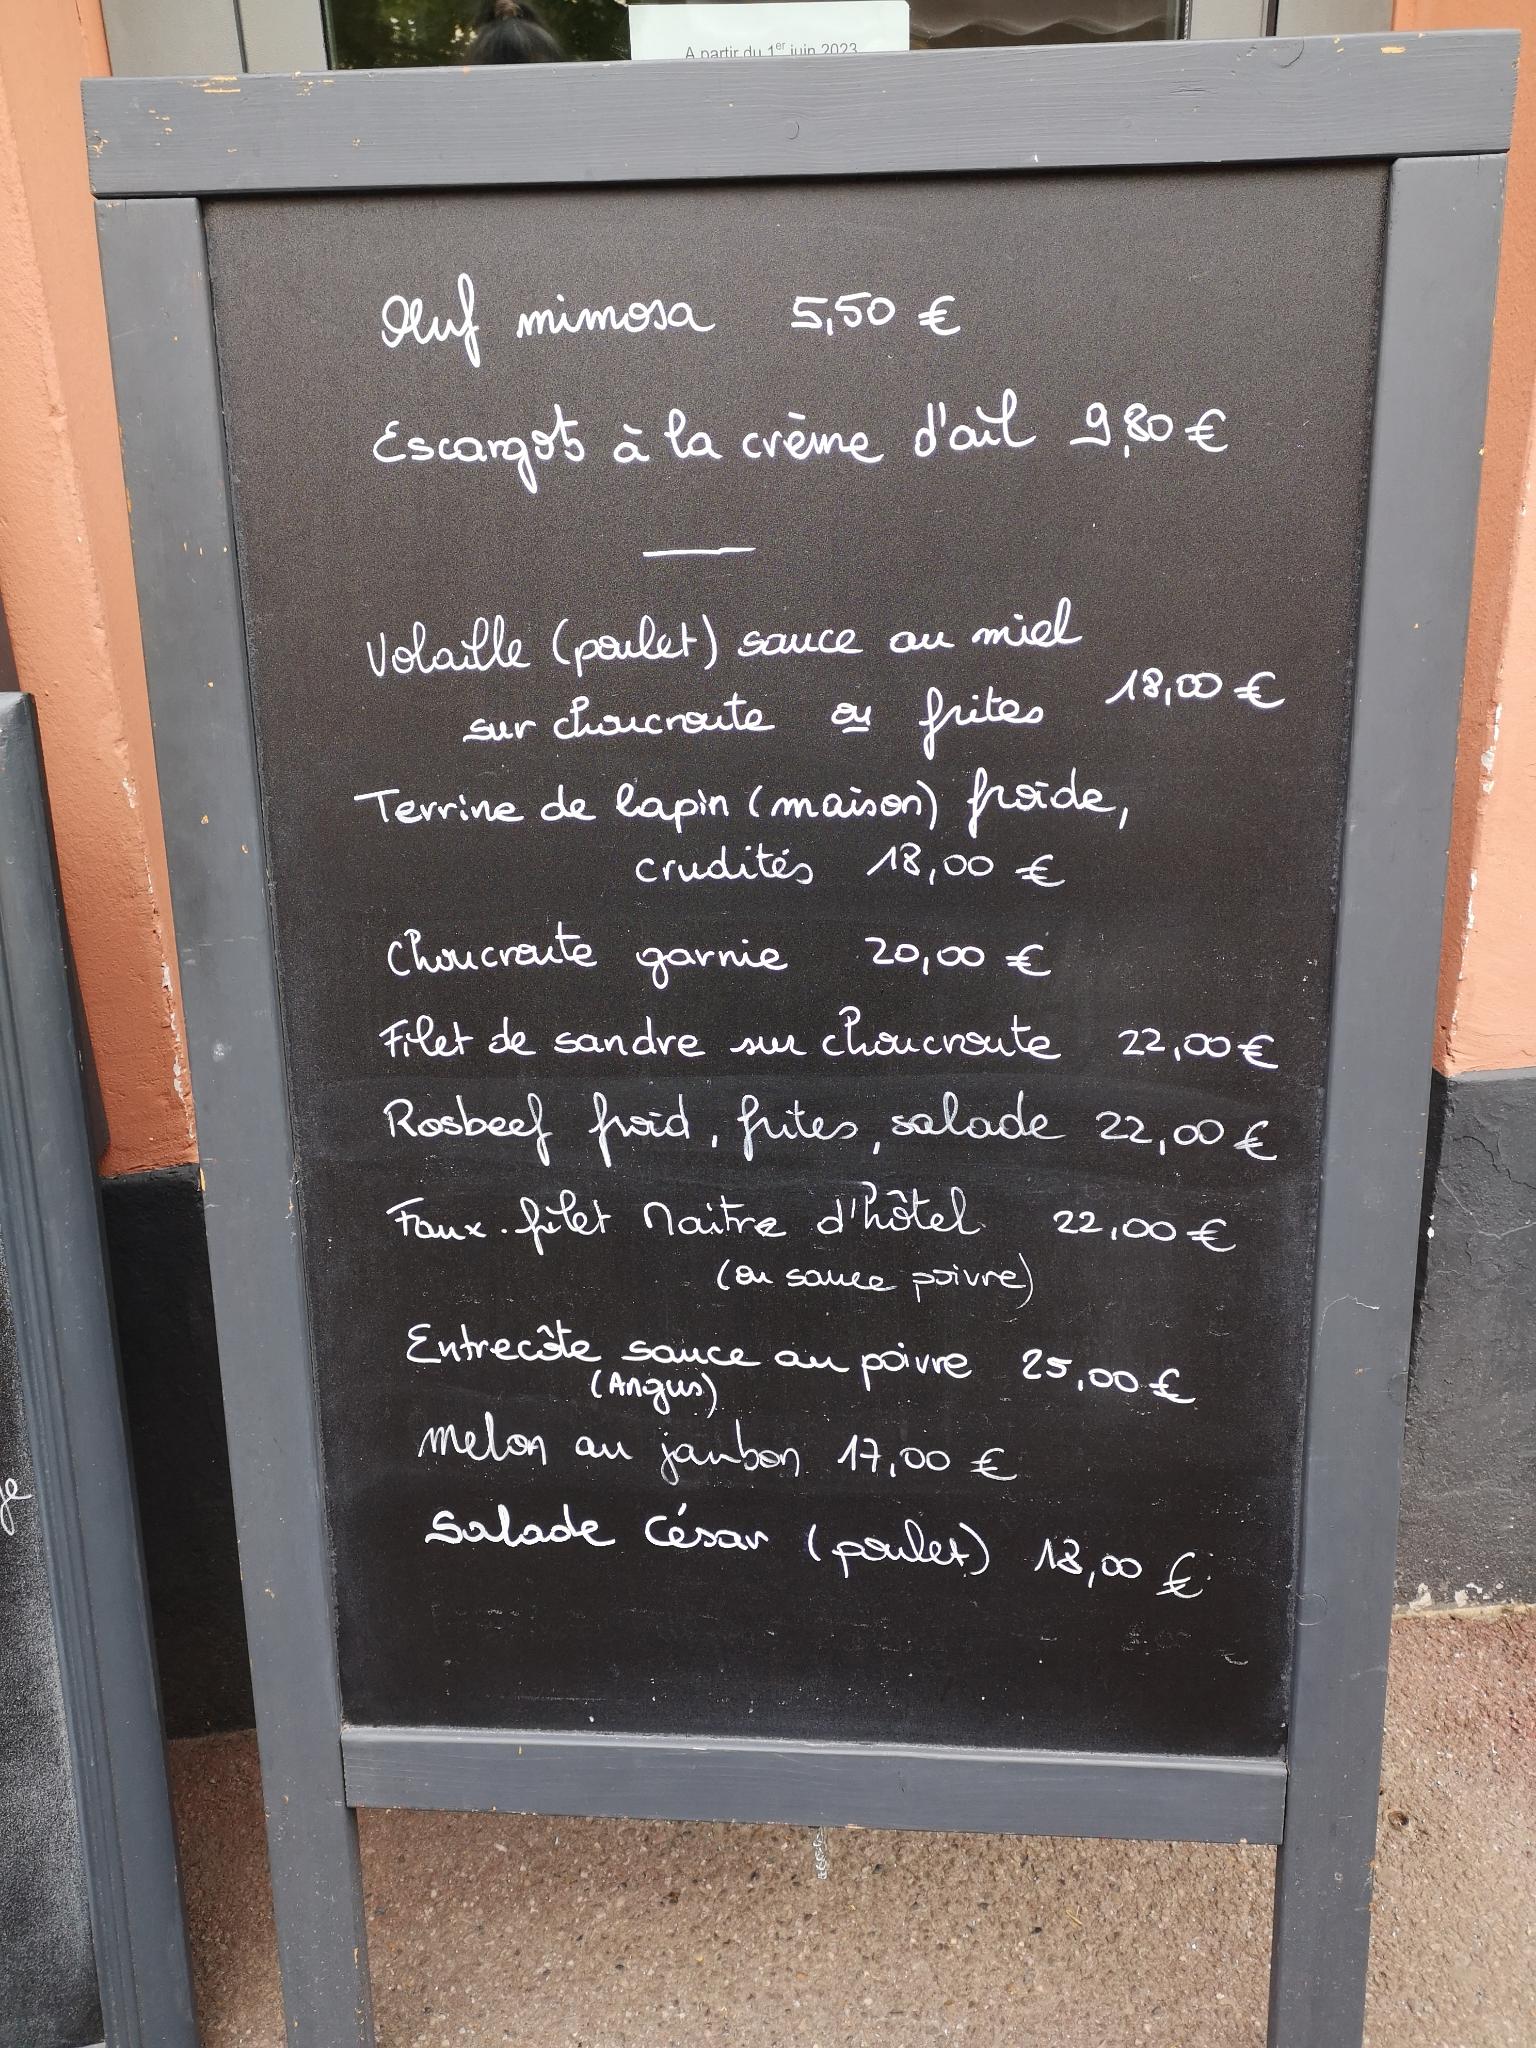 A partir du 1er juin 2023
Œuf mimosa 5,50 €
Escargots à la crème d'ail 9,80 €
Volaille (poulet) sauce au miel
sur choucroute ou frites 18,00 €
Terrine de lapin (maison) froide,
crudités 18,00 €
Choucroute garnie 20,00 €
Filet de sandre sur choucroute 22,00 €
Rosbeef froid, frites, salade 22,00 €
Faux-filet Maître d'hôtel 22,00 €
(ou sauce poivre)
Entrecôte sauce au poivre 25,00 €
(Angus)
Melon au jambon 17,00 €
Salade César (poulet) 18,00 €